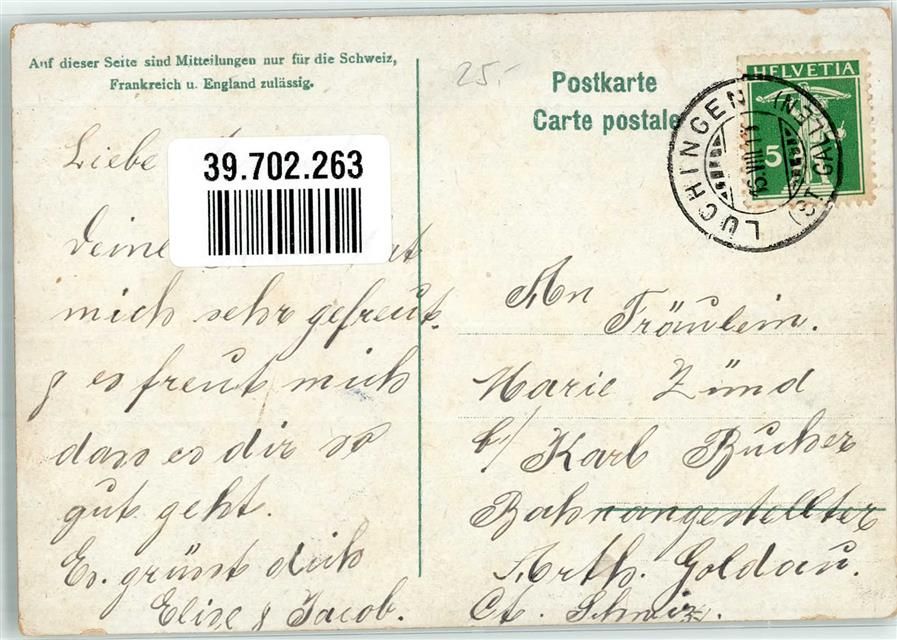 Auf dieser Seite sind Mitteilungen nur für die Schweiz,
Frankreich u. England zulässig.
25.-
Postkarte
Carte postale
HELVETIA
5
LÜCHINGEN
(ST. GALLEN)
39.702.263
Liebe
Deine
mich sehr gefreut.
& es freut mich
dass es dir so
gut geht.
Es grüsst dich
Elise & Jacob.
An
Fräulein.
Marie Zünd
b/ Karl Bucher
Bahnangestellter
Arth. Goldau.
Ct. Schwiz.